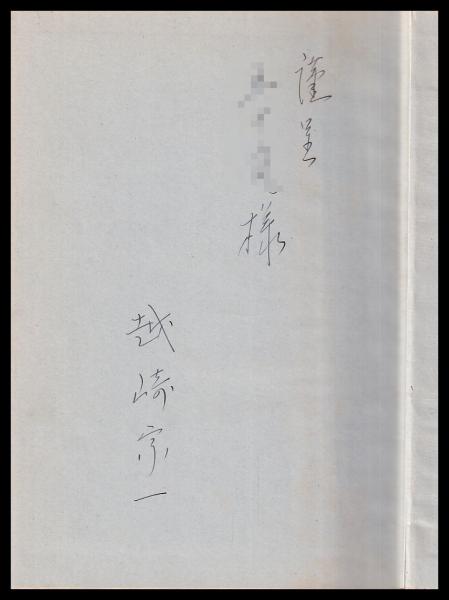 謹呈
様
越崎宗一